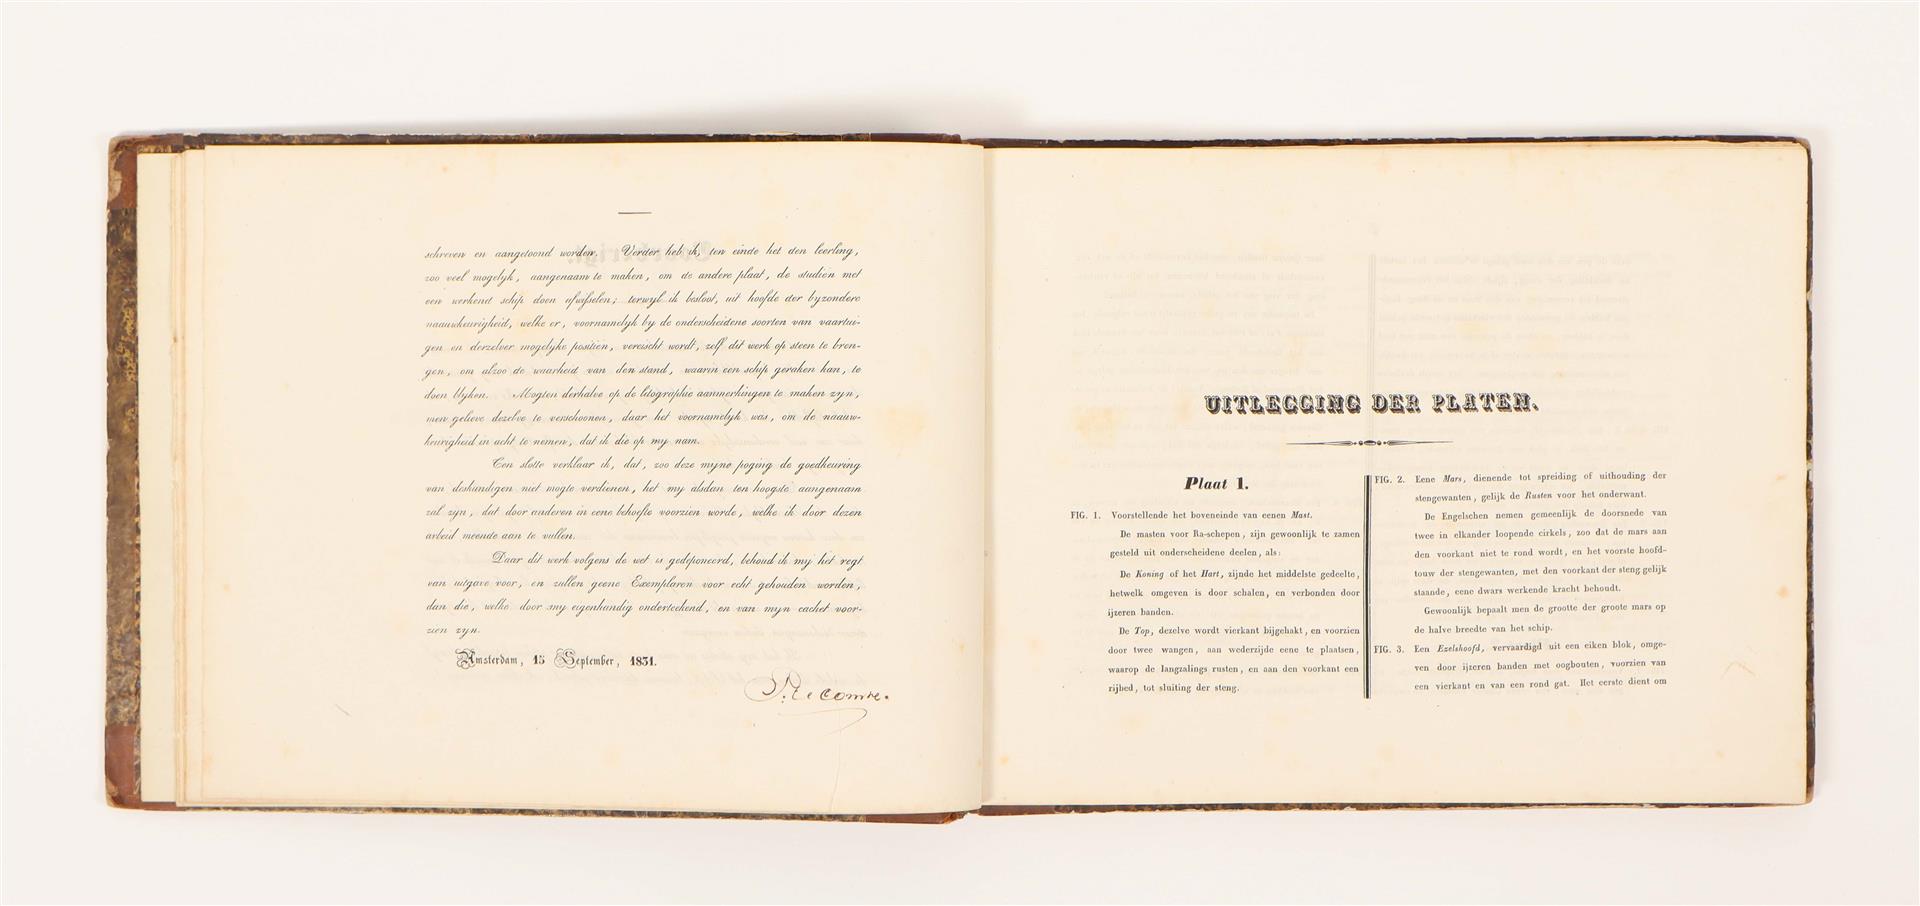 schreven en aangetoond worden. Verder heb ik, ten einde het den leerling,
zoo veel mogelyk, aangenaam te maken, om de andere plaat, de studiën met
een werkend schip doen afwisselen; terwyl ik besloot, uit hoofde der byzondere
naauwkeurigheid, welke er, voornamelyk by de onderscheidene soorten van vaartui-
gen en derzelver mogelyke positien, vereischt wordt, zelf dit werk op steen te bren-
gen, om alzoo de waarheid van den stand, waarin een schip geraken kan, te
doen blyken. Mogten derhalve op de litographie aanmerkingen te maken zyn,
men gelieve dezelve te verschoonen, daar het voornamelyk was, om de naauw-
keurigheid in acht te nemen, dat ik die op my nam.
Ten slotte verklaar ik, dat, zoo deze myne poging de goedkeuring
van deskundigen niet mogte verdienen, het my alsdan ten hoogste aangenaam
zal zyn, dat door anderen in eene behoefte voorzien worde, welke ik door dezen
arbeid meende aan te vullen.
Daar dit werk volgens de wet is gedeponeerd, behoud ik my het regt
van uitgave voor, en zullen geene Exemplaren voor echt gehouden worden,
dan die, welke door my eigenhandig onderteekend, en van myn cachet voor-
zien zyn.
Amsterdam, 15 September, 1831.
P. Le Comte.
UITLEGGING DER PLATEN.
Plaat 1.
FIG. 1. Voorstellende het boveneinde van eenen Mast.
De masten voor Ra-schepen, zijn gewoonlijk te zamen
gesteld uit onderscheidene deelen, als:
De Koning of het Hart, zijnde het middelste gedeelte,
hetwelk omgeven is door schalen, en verbonden door
ijzeren banden.
De Top, dezelve wordt vierkant bijgehakt, en voorzien
door twee wangen, aan wederzijde eene te plaatsen,
waarop de langzalings rusten, en aan den voorkant een
rijhed, tot sluiting der steng.
FIG. 2. Eene Mars, dienende tot spreiding of uithouding der
stengewanten, gelijk de Rusten voor het onderwant.
De Engelschen nemen gemeenlijk de doorsnede van
twee in elkander loopende cirkels, zoo dat de mars aan
den voorkant niet te rond wordt, en het voorste hoofd-
touw der stengewanten, met den voorkant der steng gelijk
staande, eene dwars werkende kracht behoudt.
Gewoonlijk bepaalt men de grootte der groote mars op
de halve breedte van het schip.
FIG. 3. Een Ezelshoofd, vervaardigd uit een eiken blok, omge-
ven door ijzeren banden met oogbouten, voorzien van
een vierkant en van een rond gat. Het eerste dient om